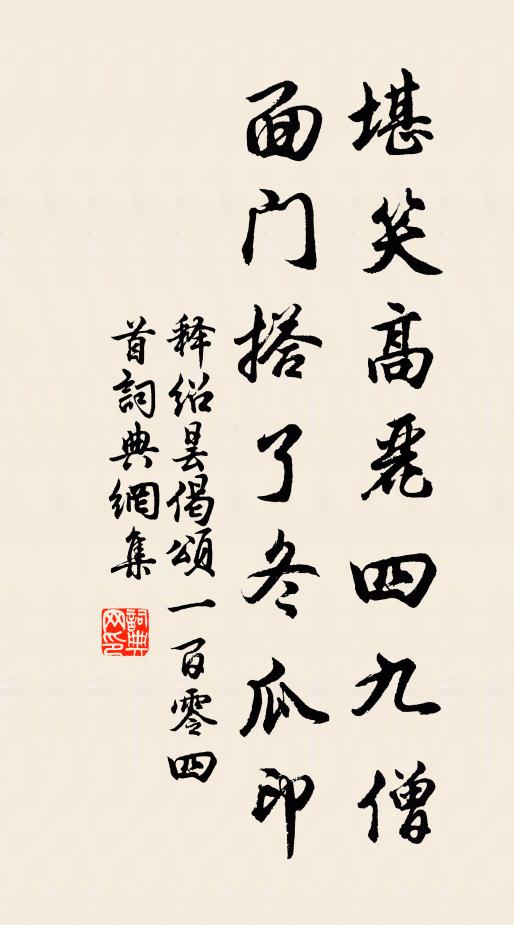 堪笑高麗四九僧
面门搭了冬瓜印
释绍昙偈頌一百零四
首詞典網集
詞典
网印